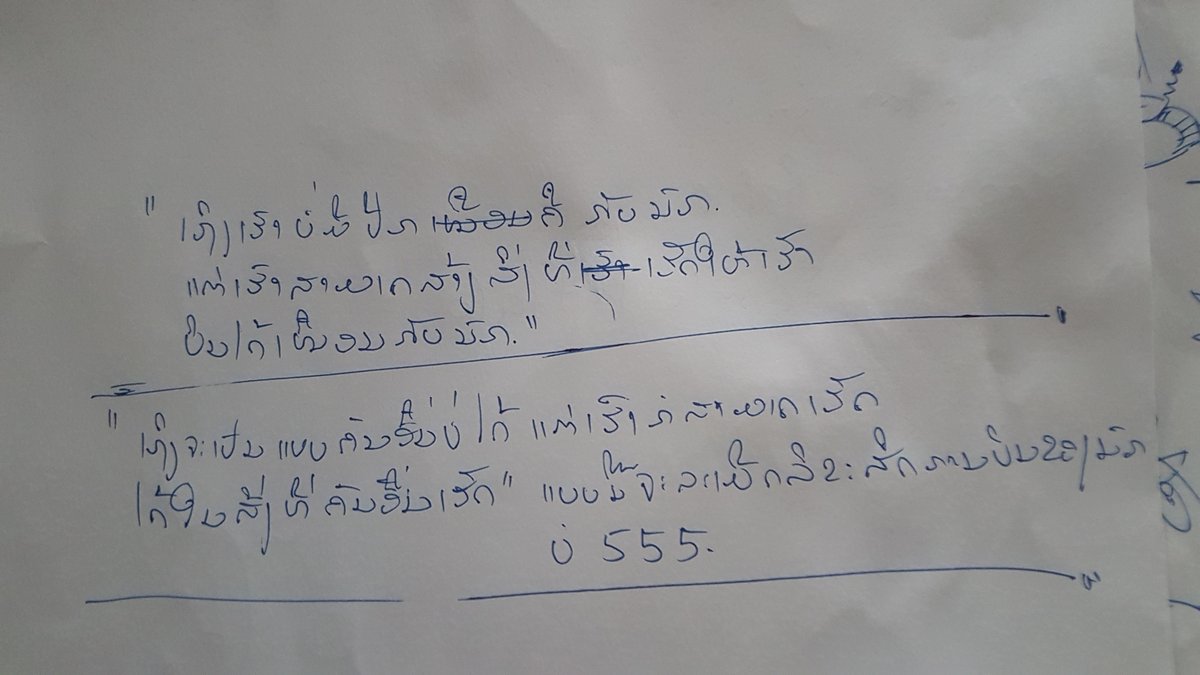 " ເຖິງເຮົາບໍ່ມີປີກ ຄື ກັບນົກ.
ແຕ່ເຮົາສາມາດສ້າງ ສິ່ງ ທີ່ ເຮັດໃຫ້ເຮົາ
ບິນໄດ້ເໝືອນກັບນົກ."
" ເຖິງຈະເປັນ ແບບຄົນອື່ນບໍ່ໄດ້ ແຕ່ເຮົາກໍ່ສາມາດເຮັດ
ໄດ້ໃນສິ່ງ ທີ່ ຄົນອື່ນເຮັດ" ແບບນີ້ຈະລະເມີດລິຂະສິດການບິນຂອງນົກ
ບໍ່ 555.